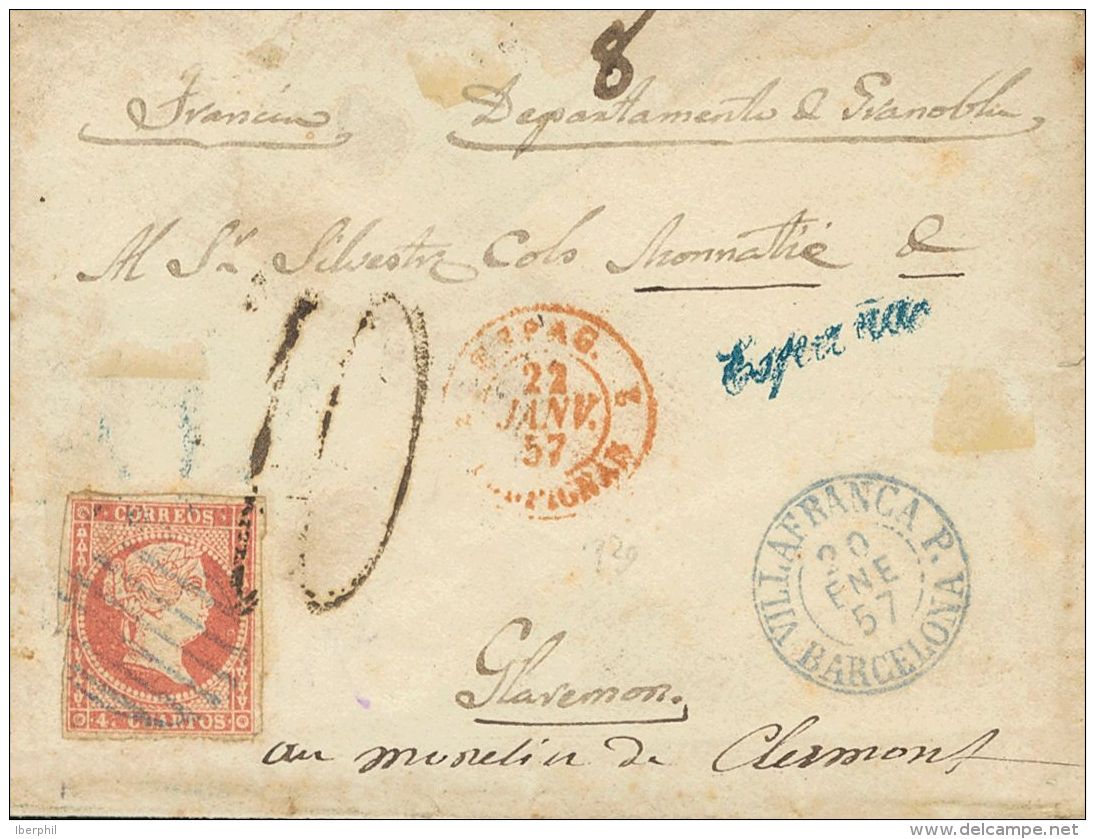 8
Francia Departamento de Granoblu
M Sr. Silvestre Cols Monnatié &
10
ESPAG.
22
JANV.
57
España
CORREOS
4 CUARTOS
VILLAFRANCA P.
20
ENE
57
BARCELONA
Glaremon.
au de Clermont
Iberphil
www.delcampe.net